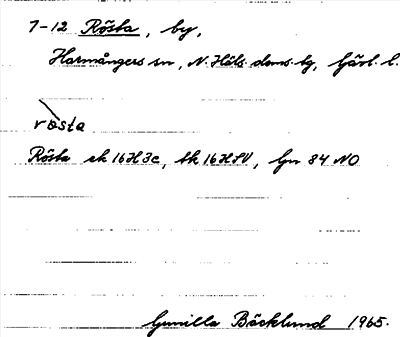 7-12 Rösta, by,
Harmångers sn, N. Häls. doms. lg, Gävl. l.
rösta
Rösta ek 16H3c, tk 16HSV, Gn 84 NO
Gunilla Bäcklund 1965.